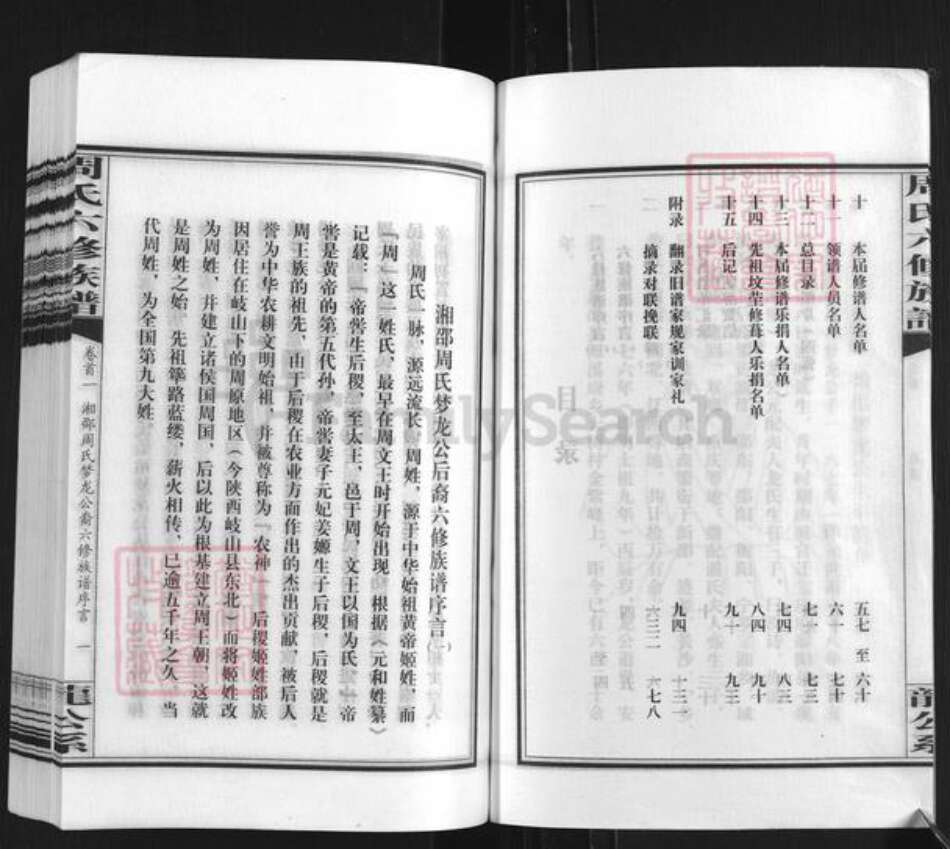 周氏六修族谱
龍公系
十 本届修谱人名单 五七 至 六十
十一 领谱人员名单 六一 七十
十二 总目录 七一 七三
十三 本届修谱乐捐人名单 七四 八三
十四 先祖坟茔修葺人乐捐名单 八四 九十
十五 后记 九一 九三
附录 翻录旧谱家规家训家礼 九四
摘录对联挽联
目录
湘邵周氏梦龙公后裔六修族谱序言(一)
周氏一脉,源远流长。周姓,源于中华始祖黄帝姬姓,而
“周”这一姓氏,最早在周文王时开始出现。根据《元和姓纂》
记载:“帝喾生后稷,至太王,邑于周,文王以国为氏”。帝
喾是黄帝的第五代孙,帝喾妻子元妃姜嫄生子后稷,后稷就是
周王族的祖先,由于后稷在农业方面作出的杰出贡献,被后人
誉为中华农耕文明始祖,并被尊称为“农神”。后稷姬姓部族
因居住在岐山下的周原地区(今陕西岐山县东北)而将姬姓改
为周姓,并建立诸侯国周国,后以此为根基建立周王朝,这就
是周姓之始。先祖筚路蓝缕,薪火相传,已逾五千年之久。当
代周姓,为全国第九大姓。
周氏六修族谱
卷首一 湘邵周氏梦龙公裔六修族谱序言 一
龍公系
FamilySearch